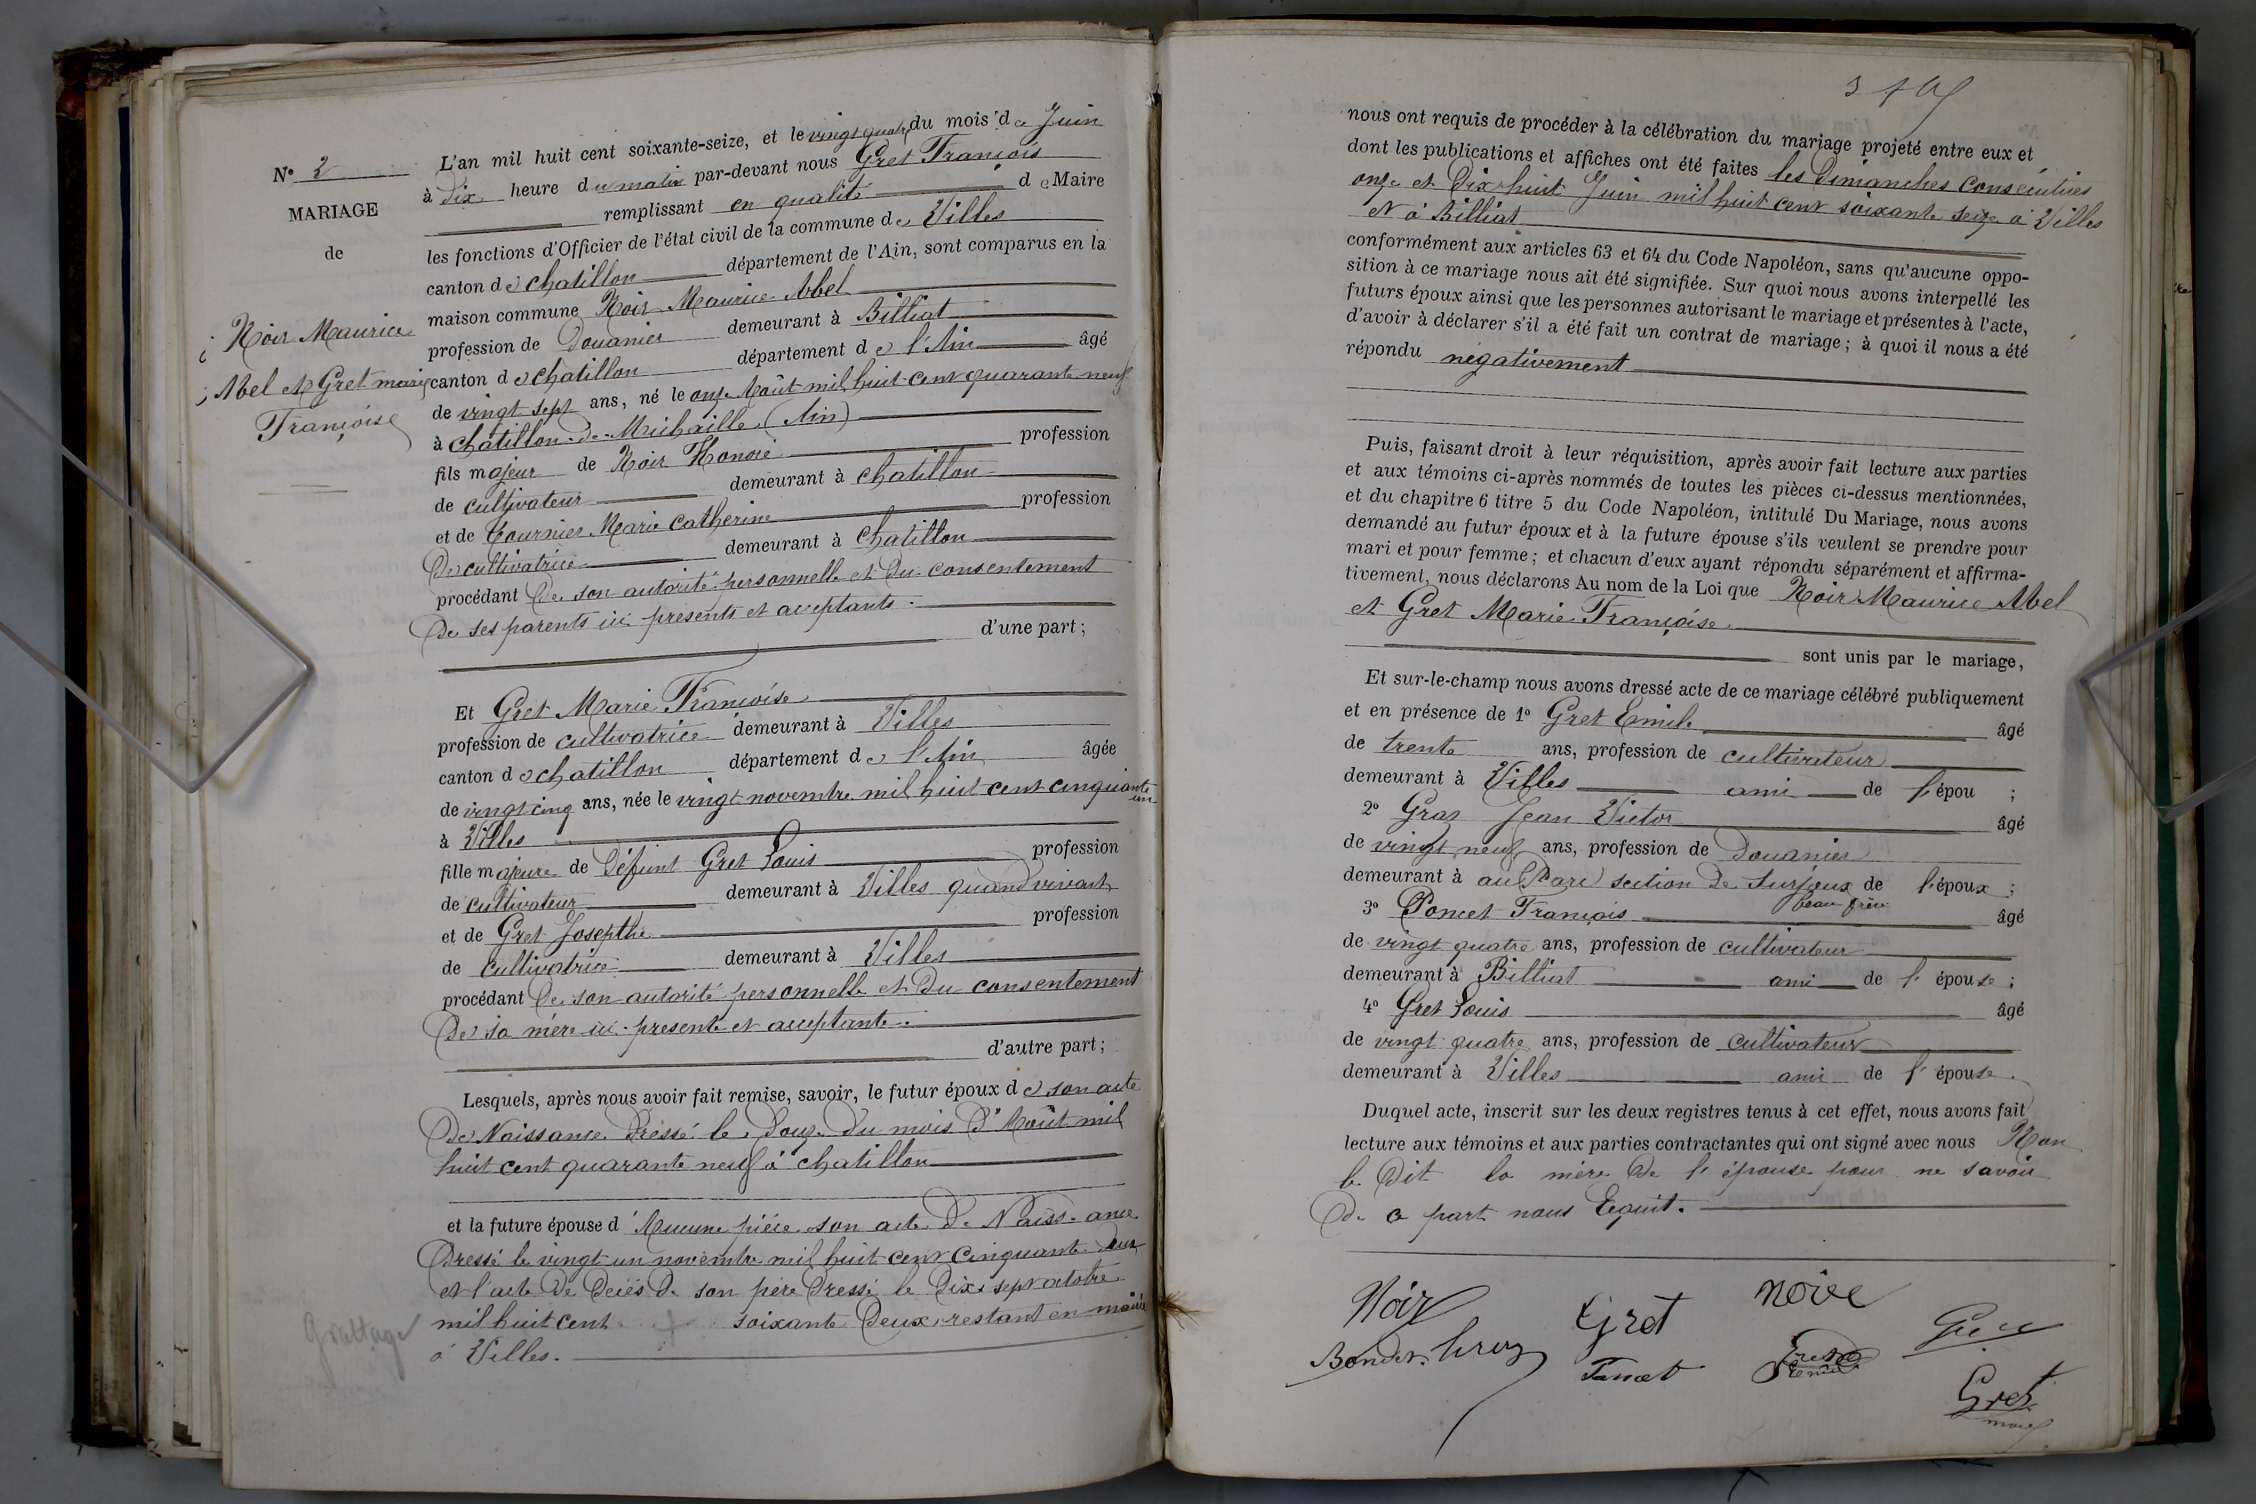 N° 2
MARIAGE
de
Noir Maurice
Abel et Gret marie
Françoise
L'an mil huit cent soixante-seize, et le vingt quatre du mois de Juin
à Dix heure du matin par-devant nous Gret François
remplissant en qualité de Maire
les fonctions d'Officier de l'état civil de la commune de Villes
canton de chatillon département de l'Ain, sont comparus en la
maison commune Noir Maurice Abel
profession de Douanier demeurant à Billiat
canton de chatillon département de l'Ain âgé
de vingt sept ans, né le onze Août mil huit cent quarante neuf
à chatillon-de-Michaille (Ain)
fils majeur de Noir Honoré profession
de cultivateur demeurant à chatillon
et de Tournier Marie Catherine profession
De cultivatrice demeurant à Chatillon
procédant De son autorité personnelle et Du consentement
De ses parents ici présents et acceptants.
d'une part;
Et Gret Marie Françoise
profession de cultivatrice demeurant à Villes
canton de chatillon département de l'Ain âgée
de vingt cinq ans, née le vingt novembre mil huit cent cinquante un
à Villes
fille majeure de Défunt Gret Louis profession
de cultivateur demeurant à Villes quand vivant
et de Gret Josepthe profession
de cultivatrice demeurant à Villes
procédant De son autorité personnelle et Du consentement
De sa mère ici présente et acceptante.
d'autre part;
Lesquels, après nous avoir fait remise, savoir, le futur époux de son acte
De Naissance Dréssé le Douze Du mois D'Août mil
huit cent quarante neuf à chatillon
et la future épouse d'Aucune pièce son acte De Naiss-ance
Dressé le vingt un novembre mil huit cent cinquante
et l'acte De Décés De son père Dressé le Dix sept octobre
mil huit cent soixante Deux restant en mairie
à Villes.
Grattage
nous ont requis de procéder à la célébration du mariage projeté entre eux et
dont les publications et affiches ont été faites les Dimanches consécutives
onze et Dix huit Juin mil huit cent soixante seize à Villes
et à Billiat
conformément aux articles 63 et 64 du Code Napoléon, sans qu'aucune oppo-
sition à ce mariage nous ait été signifiée. Sur quoi nous avons interpellé les
futurs époux ainsi que les personnes autorisant le mariage et présentes à l'acte,
d'avoir à déclarer s'il a été fait un contrat de mariage; à quoi il nous a été
répondu négativement
Puis, faisant droit à leur réquisition, après avoir fait lecture aux parties
et aux témoins ci-après nommés de toutes les pièces ci-dessus mentionnées,
et du chapitre 6 titre 5 du Code Napoléon, intitulé Du Mariage, nous avons
demandé au futur époux et à la future épouse s'ils veulent se prendre pour
mari et pour femme; et chacun d'eux ayant répondu séparément et affirma-
tivement, nous déclarons Au nom de la Loi que Noir Maurice Abel
et Gret Marie Françoise
sont unis par le mariage,
Et sur-le-champ nous avons dressé acte de ce mariage célébré publiquement
et en présence de 1° Gret Emile âgé
de trente ans, profession de cultivateur
demeurant à Villes ami de l'épou ;
2° Gras Jean Victor âgé
de vingt neuf ans, profession de Douanier
demeurant à au Parc section De Surjoux de l'époux ;
beau frère
3° Poncet François âgé
de vingt quatre ans, profession de cultivateur
demeurant à Billiat ami de l'épouse ;
4° Gret Louis âgé
de vingt quatre ans, profession de cultivateur
demeurant à Villes ami de l'épouse.
Duquel acte, inscrit sur les deux registres tenus à cet effet, nous avons fait
lecture aux témoins et aux parties contractantes qui ont signé avec nous Non
le Dit la mère De l'épouse pour ne savoir
De ce part nous Equit.
Noir Gret noire
Poncet
Gret
maire